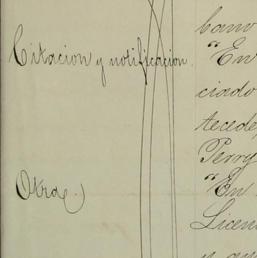 bano
Citacion y notificacion.
"En
ciado
tecede
Perry
Otra.)
"En
Licen